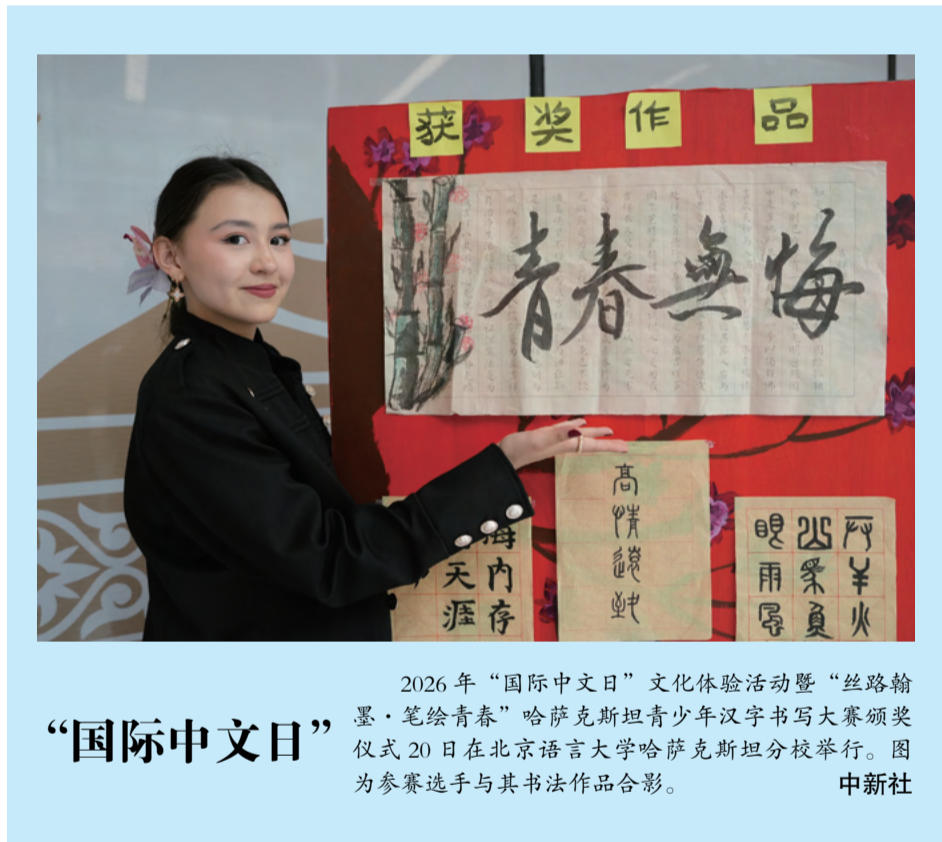 获奖作品
青春無悔
高情遠致
海内存
天涯
“国际中文日”
2026 年“国际中文日”文化体验活动暨“丝路翰
墨·笔绘青春”哈萨克斯坦青少年汉字书写大赛颁奖
仪式 20 日在北京语言大学哈萨克斯坦分校举行。图
为参赛选手与其书法作品合影。
中新社